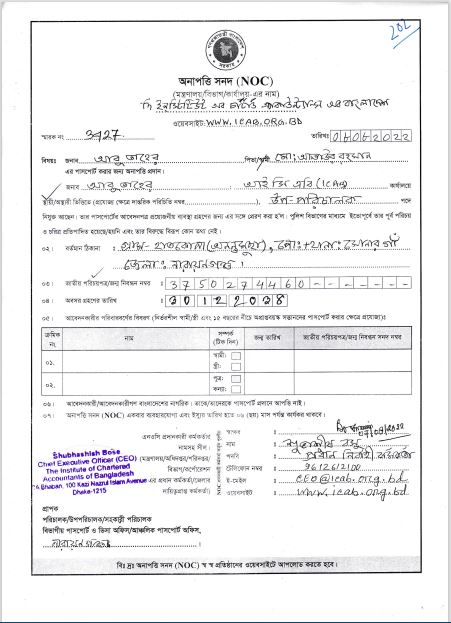 202
অনাপত্তি সনদ (NOC)
(মন্ত্রণালয়/বিভাগ/কার্যালয়-এর নাম)
দি ইনস্টিটিউট অব চার্টার্ড একাউন্ট্যান্টস অব বাংলাদেশ
ওয়েবসাইট: WWW.ICAB.ORG.BD
স্মারক নং 3927 তারিখঃ 06062022
বিষয়ঃ জনাব আবু তাহের পিতা/স্বামী মো: আতাউর রহমান
এর পাসপোর্ট করার জন্য অনাপত্তি প্রদান।
জনাব আবু তাহের আই সি এ বি (ICAB) কার্যালয়ে
স্থায়ী/অস্থায়ী ভিত্তিতে (প্রযোজ্য ক্ষেত্রে দাপ্তরিক পরিচিতি নম্বর................), উপ-পরিচালক পদে
নিযুক্ত আছেন। তার পাসপোর্টের আবেদনপত্র প্রয়োজনীয় ব্যবস্থা গ্রহণের জন্য এর সঙ্গে প্রেরণ করা হ'ল। পুলিশ বিভাগের মাধ্যমে ইতোপূর্বে তার পূর্ব পরিচয়
ও চরিত্র প্রতিপাদিত হয়েছে/হয়নি এবং তার বিরুদ্ধে বিরূপ কোন তথ্য নেই।
০২। বর্তমান ঠিকানা : গ্রাম- হাতকোপা পো:+থানা: সোনারগাঁ
জেলা: নারায়নগঞ্জ।
০৩। জাতীয় পরিচয়পত্র/জন্ম নিবন্ধন নম্বর 3750274460
০৪। অবসর গ্রহণের তারিখ 30122038
০৫। আবেদনকারীর পরিবারবর্গের বিবরণ (নির্ভরশীল স্বামী/স্ত্রী এবং ১৫ বছরের নীচে অপ্রাপ্তবয়স্ক সন্তানদের পাসপোর্ট করার ক্ষেত্রে প্রযোজ্য)ঃ
ক্রমিক নং নাম সম্পর্ক (টিক দিন) জন্ম তারিখ জাতীয় পরিচয়পত্র/জন্ম নিবন্ধন সনদ নম্বর
০১. স্বামী:
স্ত্রী:
০২. পুত্র:
কন্যা:
০৬। আবেদনকারী/আবেদনকারীগণ বাংলাদেশের নাগরিক। তাকে/তাদেরকে পাসপোর্ট প্রদানে আপত্তি নাই।
০৭। অনাপত্তি সনদ (NOC) একবার ব্যবহারযোগ্য এবং ইস্যুর তারিখ হতে ০৬ (ছয়) মাস পর্যন্ত কার্যকর থাকবে।
এনওসি প্রদানকারী কর্মকর্তার
নামসহ সীল।
(মন্ত্রণালয়/অধিদপ্তর/পরিদপ্তর/
বিভাগ/কর্পোরেশন
এর প্রধান কর্মকর্তা/জেলার
দায়িত্বপ্রাপ্ত কর্মকর্তা)
Shubhashish Bose
Chief Executive Officer (CEO)
The Institute of Chartered
Accountants of Bangladesh
CA Bhaban, 100 Kazi Nazrul Islam Avenue
Dhaka-1215
স্বাক্ষর
নাম শুভাশীষ বসু
পদবি প্রধান নির্বাহী কর্মকর্তা
টেলিফোন নম্বর 9612612100
ই-মেইল ceo@icab.org.bd
ওয়েবসাইট www.icab.org.bd
প্রাপক
পরিচালক/উপপরিচালক/সহকারী পরিচালক
বিভাগীয় পাসপোর্ট ও ভিসা অফিস/আঞ্চলিক পাসপোর্ট অফিস,
নারায়নগঞ্জ
বিঃ দ্রঃ অনাপত্তি সনদ (NOC) স্ব স্ব প্রতিষ্ঠানের ওয়েবসাইটে আপলোড করতে হবে।